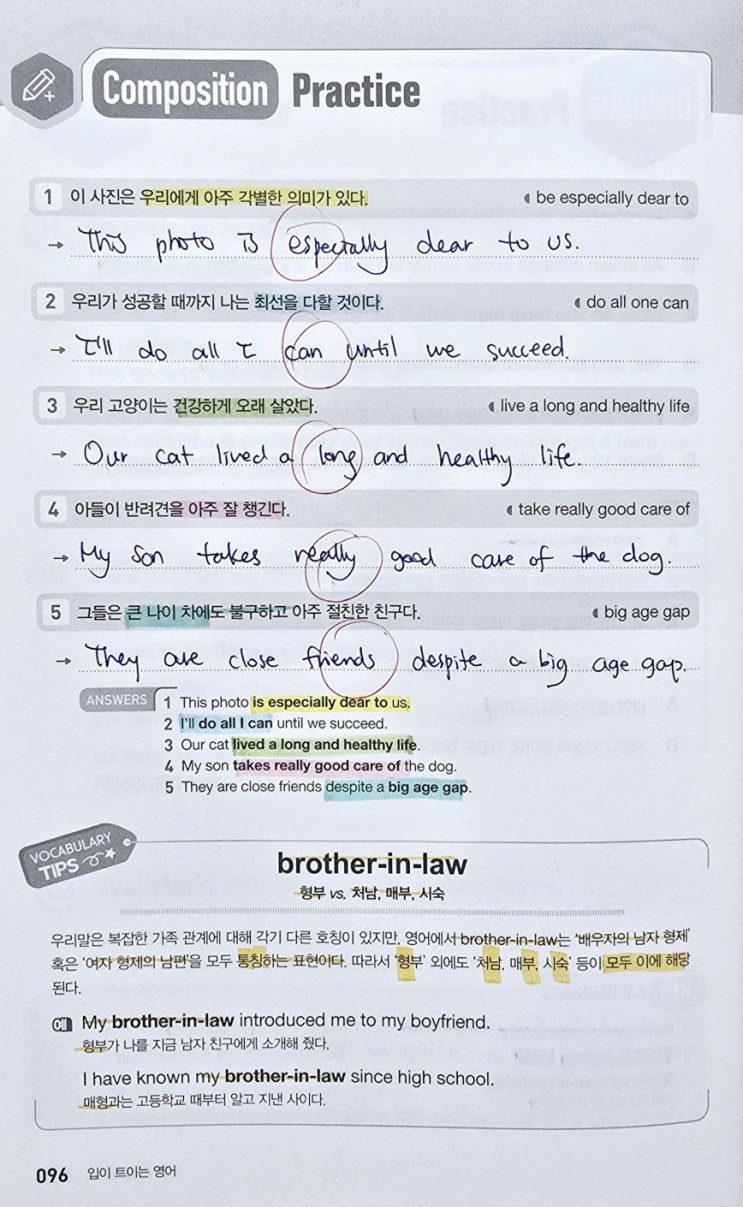 Composition Practice
1 이 사진은 우리에게 아주 각별한 의미가 있다. be especially dear to
→ This photo is especially dear to us.
2 우리가 성공할 때까지 나는 최선을 다할 것이다. do all one can
→ I'll do all I can until we succeed.
3 우리 고양이는 건강하게 오래 살았다. live a long and healthy life
→ Our cat lived a long and healthy life.
4 아들이 반려견을 아주 잘 챙긴다. take really good care of
→ My son takes really good care of the dog.
5 그들은 큰 나이 차에도 불구하고 아주 절친한 친구다. big age gap
→ They are close friends despite a big age gap.
ANSWERS 1 This photo is especially dear to us.
2 I'll do all I can until we succeed.
3 Our cat lived a long and healthy life.
4 My son takes really good care of the dog.
5 They are close friends despite a big age gap.
VOCABULARY
TIPS
brother-in-law
형부 vs. 처남, 매부, 시숙
우리말은 복잡한 가족 관계에 대해 각기 다른 호칭이 있지만, 영어에서 brother-in-law는 '배우자의 남자 형제'
혹은 '여자 형제의 남편'을 모두 통칭하는 표현이다. 따라서 '형부' 외에도 '처남, 매부, 시숙' 등이 모두 이에 해당
된다.
예 My brother-in-law introduced me to my boyfriend.
형부가 나를 지금 남자 친구에게 소개해 줬다.
I have known my brother-in-law since high school.
매형과는 고등학교 때부터 알고 지낸 사이다.
096 입이 트이는 영어